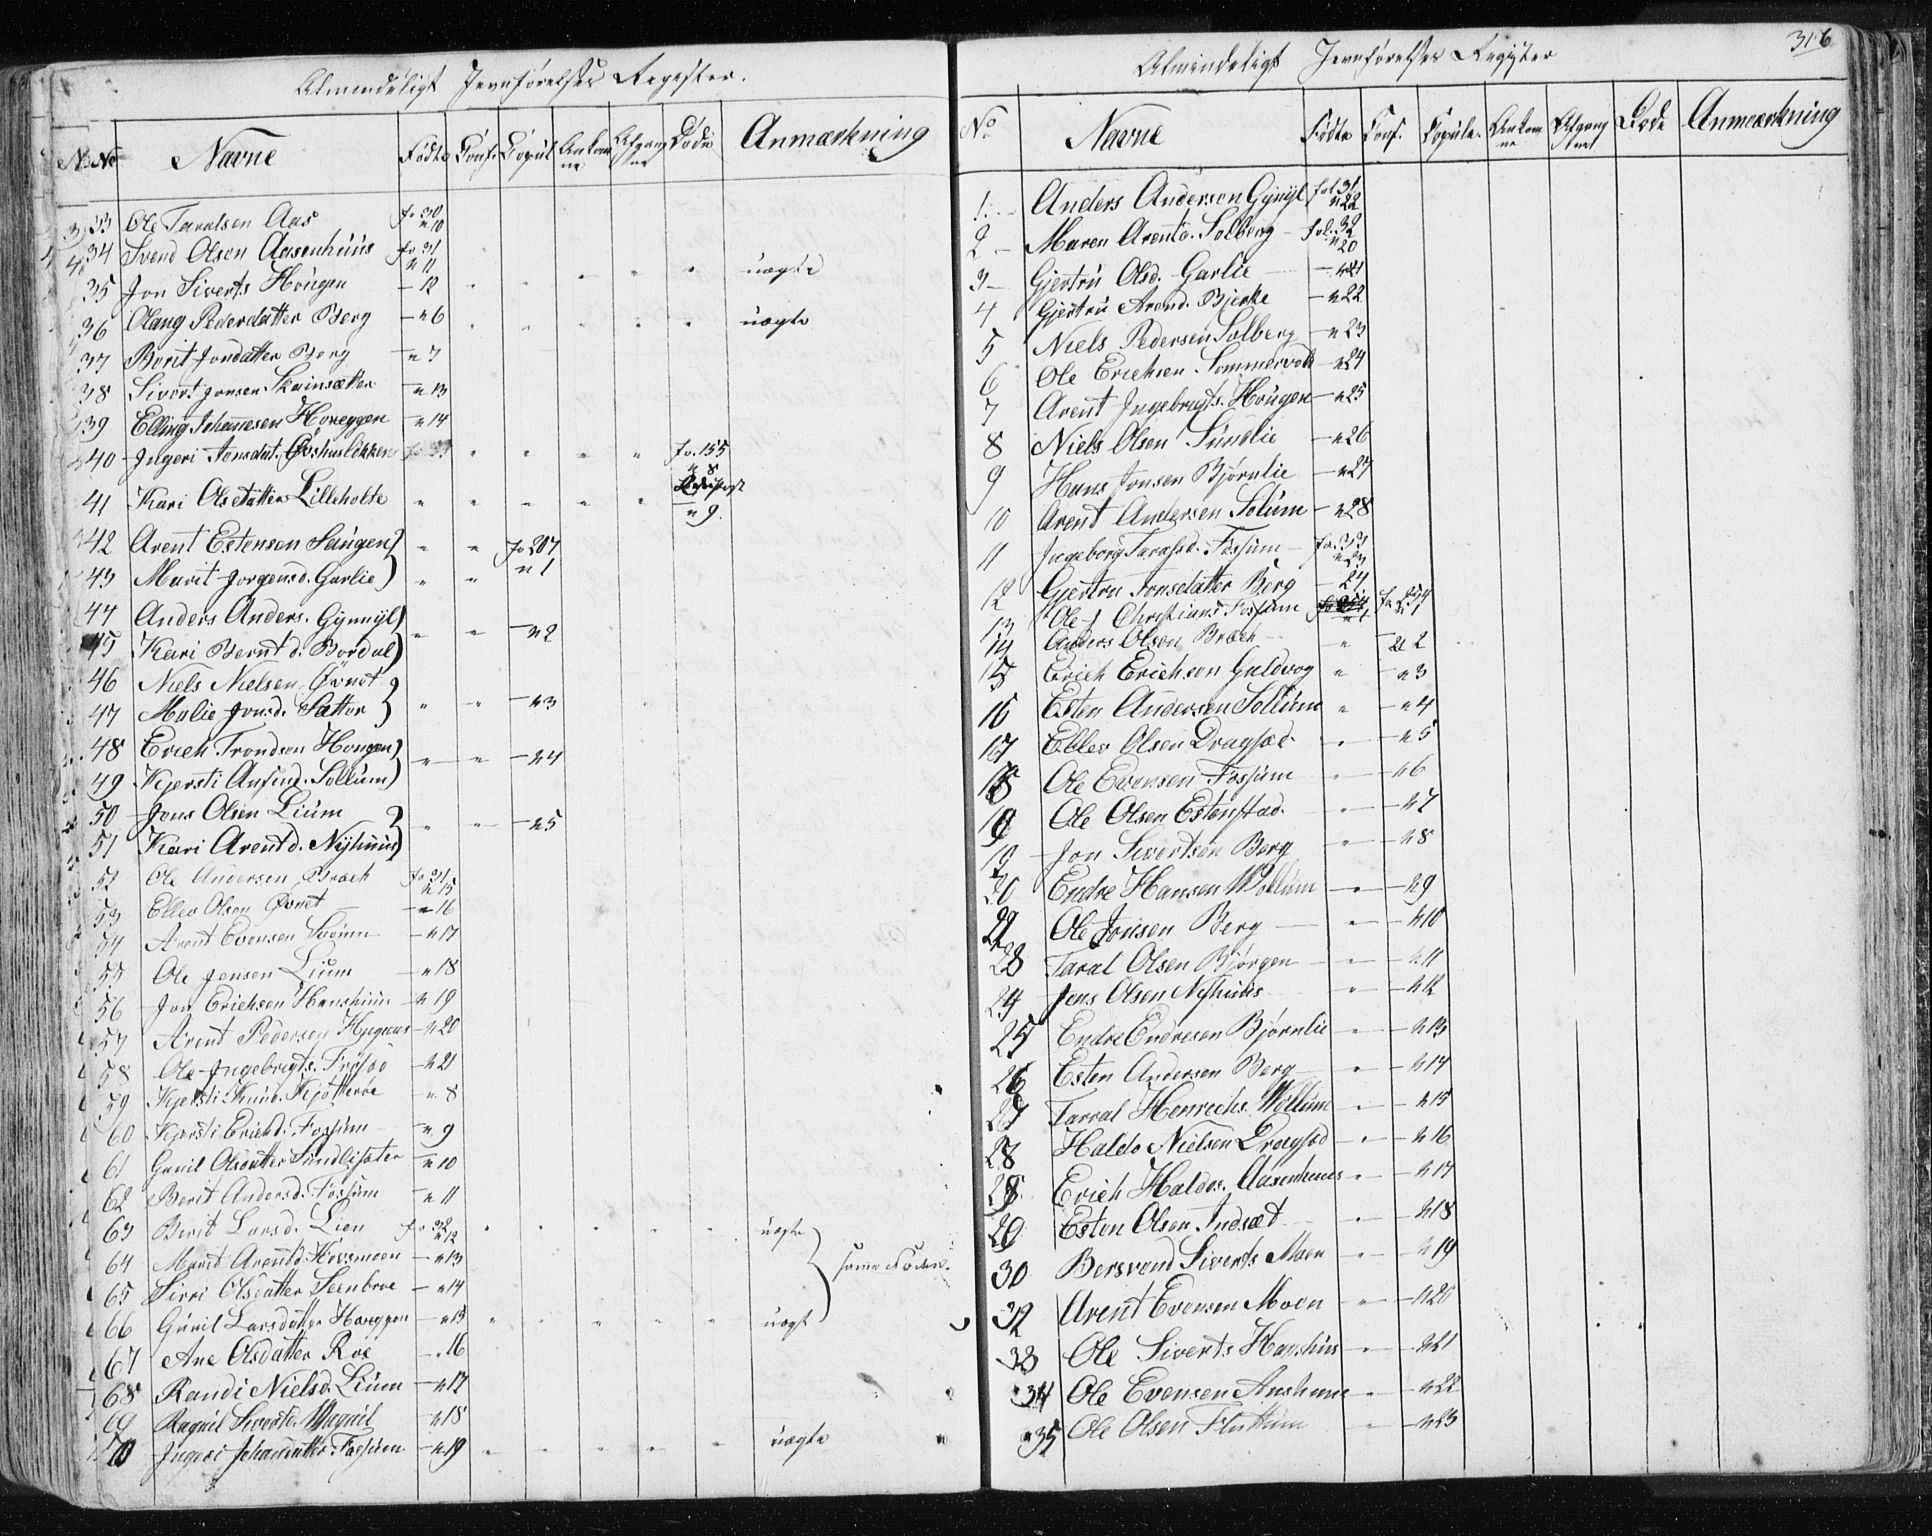 Almindeligt Jevnførelses Register.
No Navne Fødte Conf. Copul. Ankomne Afgangne Døde Anmærkning
33 Ole Taralsen Aas fo 30 n 10
34 Svend Olsen Aasenhuus fo 31 n 11
35 Jon Siverts Hougen — 12 " " " " " uægte
36 Olaug Pederdatter Berg — n 6 " " " " " uægte
37 Berit Jondatter Berg — n 7
38 Sivert Jonsen Skainsætter — n 13
39 Elling Johannesen Horeggen — n 14
40 Ingeri Jonsdat. Øvshusløkken fo 31 " " " " fo. 155 n 8
41 Kari Olsdatter Lilleholte " " " " " n 9.
42 Arent Estensen Haugen " " fo 207 n 1
43 Marit Jorgensd. Garlie " "
44 Anders Anders. Gynnyl
45 Kari Bernt d. Bordal " " — n 2
46 Niels Nielsen Øvnet
47 Malie Jonsd. Sætter " " — n 3
48 Erich Trondsen Hougen
49 Kjersti Anfind. Sollum " " — n 4
50 Jens Olsen Lium
51 Kari Arent d. Nyhuus " " — n 5
52 Ole Andersen Bræch fo 31 n 15
53 Ellev Olsen Øvnet — n 16
54 Arent Evensen — n 17
55 Ole Jensen Lium — n 18
56 Jon Erichsen Hanshuus — n 19
57 Arent Pedersen — n 20
58 Ole Ingebrigts. — n 21
59 Kjersti Knud. — n 8
60 Kjersti Erichd. Fossum — n 9
61 Gunil Olsdatter Sundlisæter — n 10
62 Berit Andersd. Fossum — n 11
63 Berit Larsd. Lien fo 32 n 12 " " " " " uægte
64 Marit Arentd. — n 13
65 Sirri Olsdatter — n 14
66 Gunil Larsdatter Horeggen — n 15 " " " " " uægt
67 Ane Olsdatter Roe — n 16
68 Randi Nielsd. Lium — n 17
69 Ragnil Siverts. — n 18
70 Ingeri Johandatter Fossum — n 19 " " " " " uægte
316
Almindeligt Jevnførelses Register
No Navne Fødte Conf. Copule. Ankomne Afgangne Døde Anmærkning
1. Anders Andersen Gynnyl fol 31 n 22
2 Maren Arentd. Solberg fol. 32 n 20
3 Gjertru Olsd. Garlie — n 21
4 Gjertru Arend. Bjerke — n 22
5 Niels Pedersen Solberg — n 23
6 Ole Erichsen Sommervold — n 24
7 Arent Ingebrigts. Hougen — n 25
8 Niels Olsen Sundlie — n 26
9 Hans Jonsen Bjørnlie — n 27
10 Arent Andersen Solum — n 28
11 Ingeborg Tarals d. Fossum — fo. 33 n 23
12 Gjertru Jonsdatter Berg — 24
13 Ole J Christians Fossum fo 254 n 1
14 Anders Olsen Bræch " — n 2
15 Erich Erichsen Guldvog " — n 3
16 Esten Andersen Sollum " — n 4
17 Ellev Olsen Dragsæt " — n 5
18 Ole Evensen Fossum " — n 6
19 Ole Olsen Estenstad " — n 7
19 Jon Sivertsen Berg " — n 8
20 Endre Hansen Wollum " — n 9
21 Ole Jonsen Berg " — n 10
23 Taral Olsen Bjørgen " — n 11
24 Jens Olsen Nyhuus " — n 12
25 Endre Endresen Bjørnlie " — n 13
26 Esten Andersen Berg " — n 14
27 Tarral Henrichs. Wollum " — n 15
28 Haldo Nielsen Dragsæd " — n 16
Erich Haldos. Aasenhuus " — n 17
29 Esten Olsen Indsæt " — n 18
30 Bersvend Siverts Moen " — n 19
32 Arent Evensen Moen " — n 20
33 Ole Siverts Hanshus " — n 21
34 Ole Evensen " — n 22
35 Ole Olsen Fluttum " — n 23